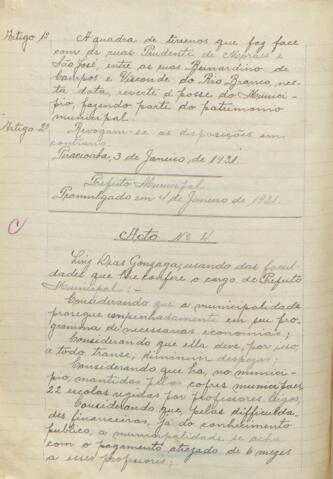 Artigo 1º A quadra de terrenos que faz face
com as ruas Prudente de Moraes e
São José, entre as ruas Bernardino de
Campos e Visconde do Rio Branco, nes-
ta data, reverte á posse do Munici-
pio, fazendo parte do patrimonio
municipal.
Artigo 2º Revogam-se as disposições em
contrario.
Piracicaba, 3 de Janeiro, de 1931.
Prefeito Municipal
Promulgado em 4 de Janeiro de 1931.
C
Acto Nº 4
Luiz Dias Gonzaga, usando das facul-
dades que lhe confere o cargo de Prefeito
Municipal: -
Considerando que a municipalidade
prosegue empenhadamente em seu pro-
gramma de necessarias economias;
Considerando que ella deve, por isso,
a todo transe, diminuir despezas;
Considerando que ha, no munici-
pio, mantidas pelos cofres municipaes,
22 escolas regidas por professores leigos,
Considerando que, pelas difficulda-
des financeiras, já do conhecimento
publico, a municipalidade se acha
com o pagamento atrazado de 6 mezes
a esses professores;